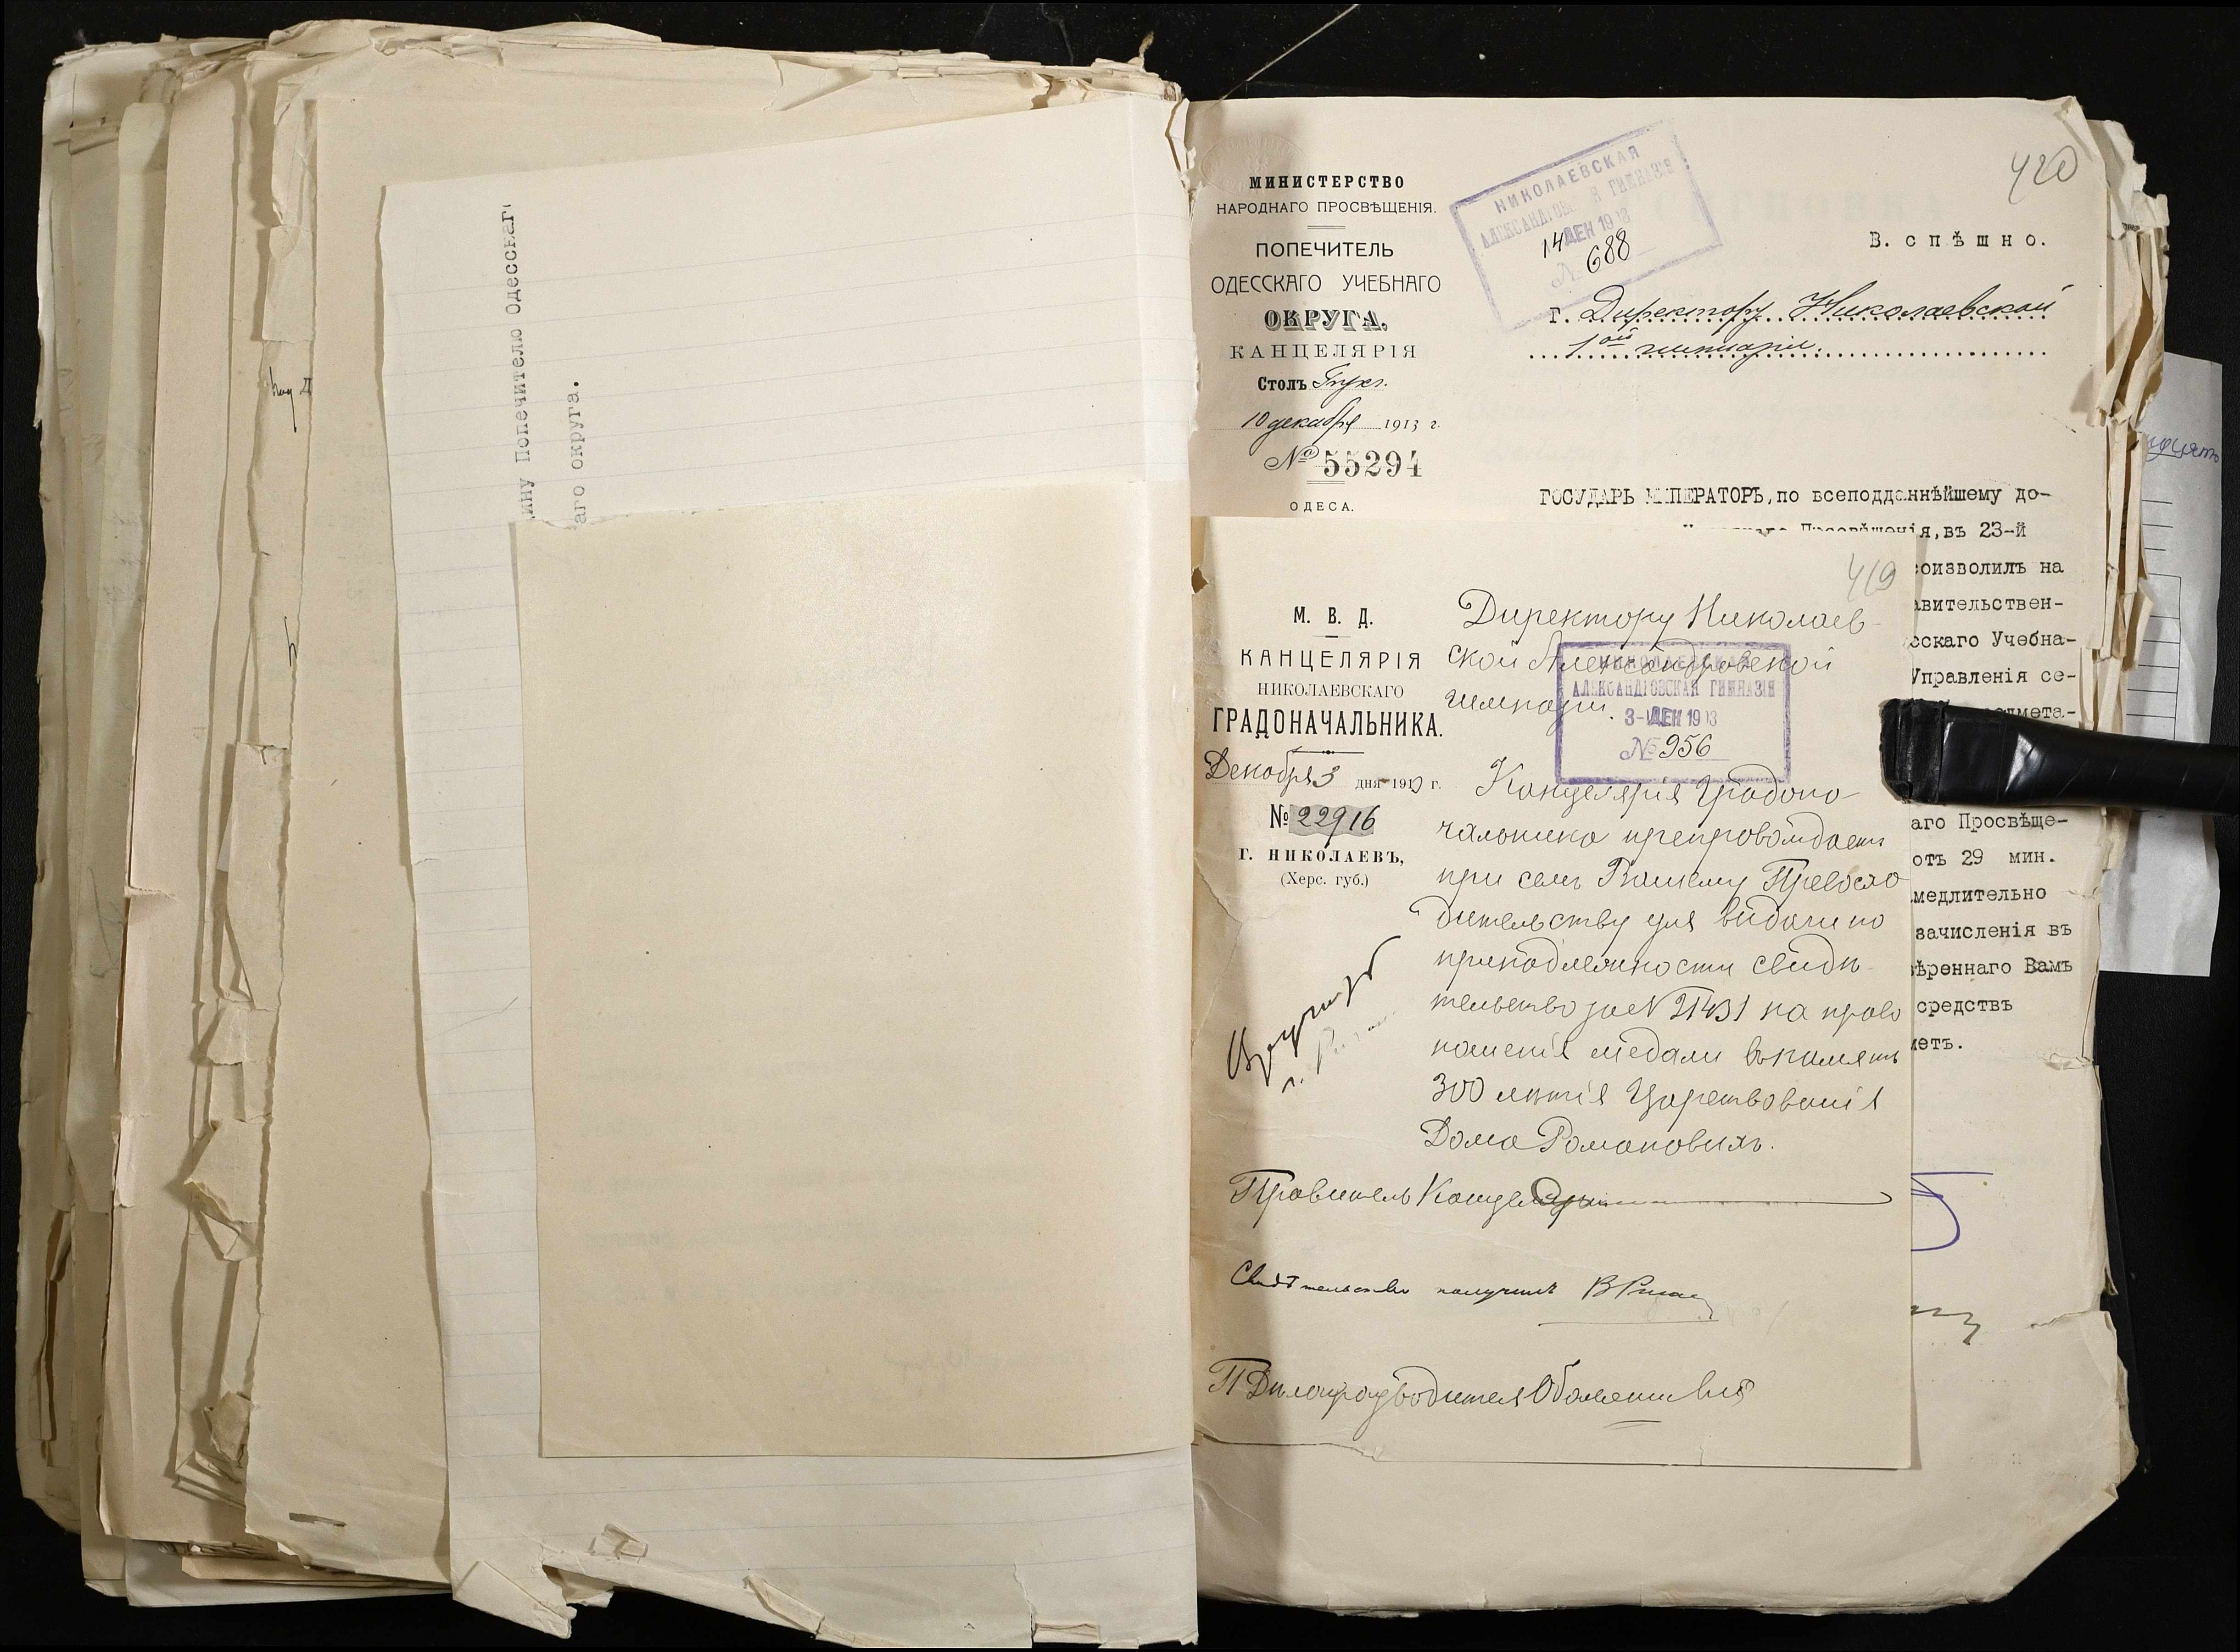 ину Попечителю Одесскаг
аго округа.
420
МИНИСТЕРСТВО
НАРОДНАГО ПРОСВѢЩЕНІЯ.
ПОПЕЧИТЕЛЬ
ОДЕССКАГО УЧЕБНАГО
ОКРУГА.
КАНЦЕЛЯРІЯ
Столъ
10 декабря 1913 г.
№ 55294
ОДЕСА.
НИКОЛАЕВСКАЯ
АЛЕКСАНДРОВСКАЯ ГИМНАЗІЯ
14 ДЕК 1913
№ 688
В. спѣшно.
Г. Директору Николаевской
1ой гимназіи.
ГОСУДАРЬ ИМПЕРАТОРЪ, по всеподданнѣйшему до-
Народнаго Просвѣщенія, въ 23-й
соизволилъ на
авительствен-
сскаго Учебна-
Управленія се-
едмета-
аго Просвѣще-
отъ 29 мин.
медлительно
зачисленія въ
ѣреннаго Вамъ
средствъ
метъ.
419
М. В. Д.
КАНЦЕЛЯРІЯ
НИКОЛАЕВСКАГО
ГРАДОНАЧАЛЬНИКА.
Декабря 3 дня 1913 г.
№ 22916
Г. НИКОЛАЕВЪ,
(Херс. губ.)
Директору Николаев-
ской Александровской
гимназіи.
НИКОЛАЕВСКАЯ
АЛЕКСАНДРОВСКАЯ ГИМНАЗІЯ
3-ДЕК 1913
№ 956
Канцелярія Градона-
чальника препровождаетъ
при семъ Вашему Превосхо-
дительству для выдачи по
принадлежности свидѣ-
тельство за № 21431 на право
ношенія медали въ память
300 лѣтія Царствованія
Дома Романовыхъ.
Правитель Канцеляріи
Свидѣтельство получилъ
П Дѣлопроизводителя